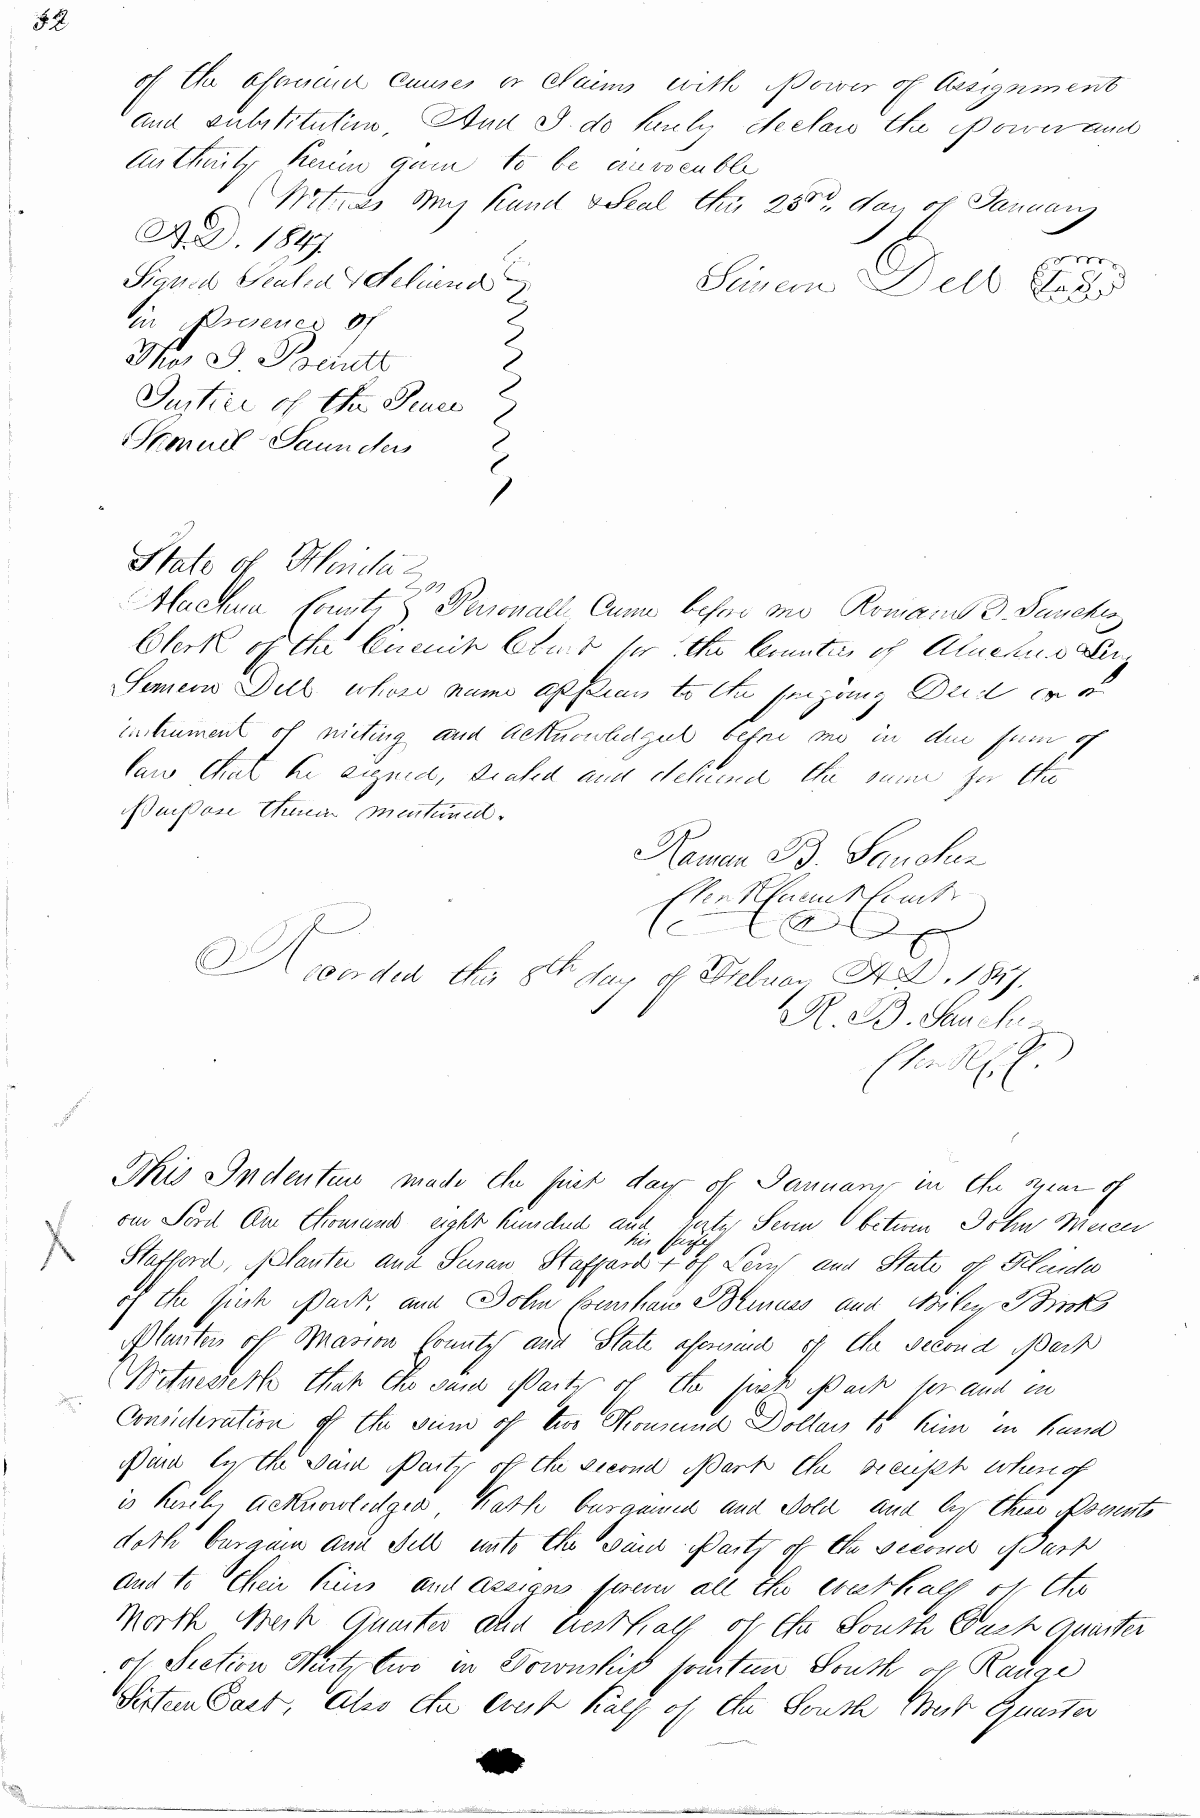 52
of the aforesaid causes or claims with Power of Assignment
and substitution, And I do hereby declare the Power and
authority herein given to be irrevocable
Witness My hand & Seal this 23rd. day of January
A.D. 1847.
Signed Sealed & delivered
Simeon Dell
in Presence of
Thos J. Prevatt
Justice of the Peace
Samuel Saunders
State of Florida
Alachua County Personally Came before me Romaro B. Sanchez
Clerk of the Circuit Court for the Counties of Alachua & Levy
Simeon Dell whose name appears to the foregoing Deed or
instrument of writing and acknowledged before me in due form of
law that he signed, sealed and delivered the same for the
Purpose therein mentioned.
Roman B. Sanchez
Clerk Circuit Court
Recorded this 8th day of Februay A.D. 1847.
R. B. Sanchez
Clerk C. C.
This Indenture made the first day of January in the year of
our Lord One thousand eight hundred and forty Seven between John Mercer
his wife
Stafford, Planter and Susan Stafford + of Levy and State of Florida
of the first Part, and John Crenshaw and Wiley Brooks
Planters of Marion County and State aforesaid of the second Part
Witnesseth that the said Party of the first Part for and in
Consideration of the sum of two Thousand Dollars to him in hand
Paid by the said Party of the second Part the receipt whereof
is hereby acknowledged, hath bargained and Sold and by these Presents
doth bargain and Sell unto the said Party of the second Part
and to their heirs and assigns forever all the west half of the
North West Quarter and west half of the South East quarter
of Section Thirty two in Township fourteen South of Range
Sixteen East, Also the west half of the South West Quarter